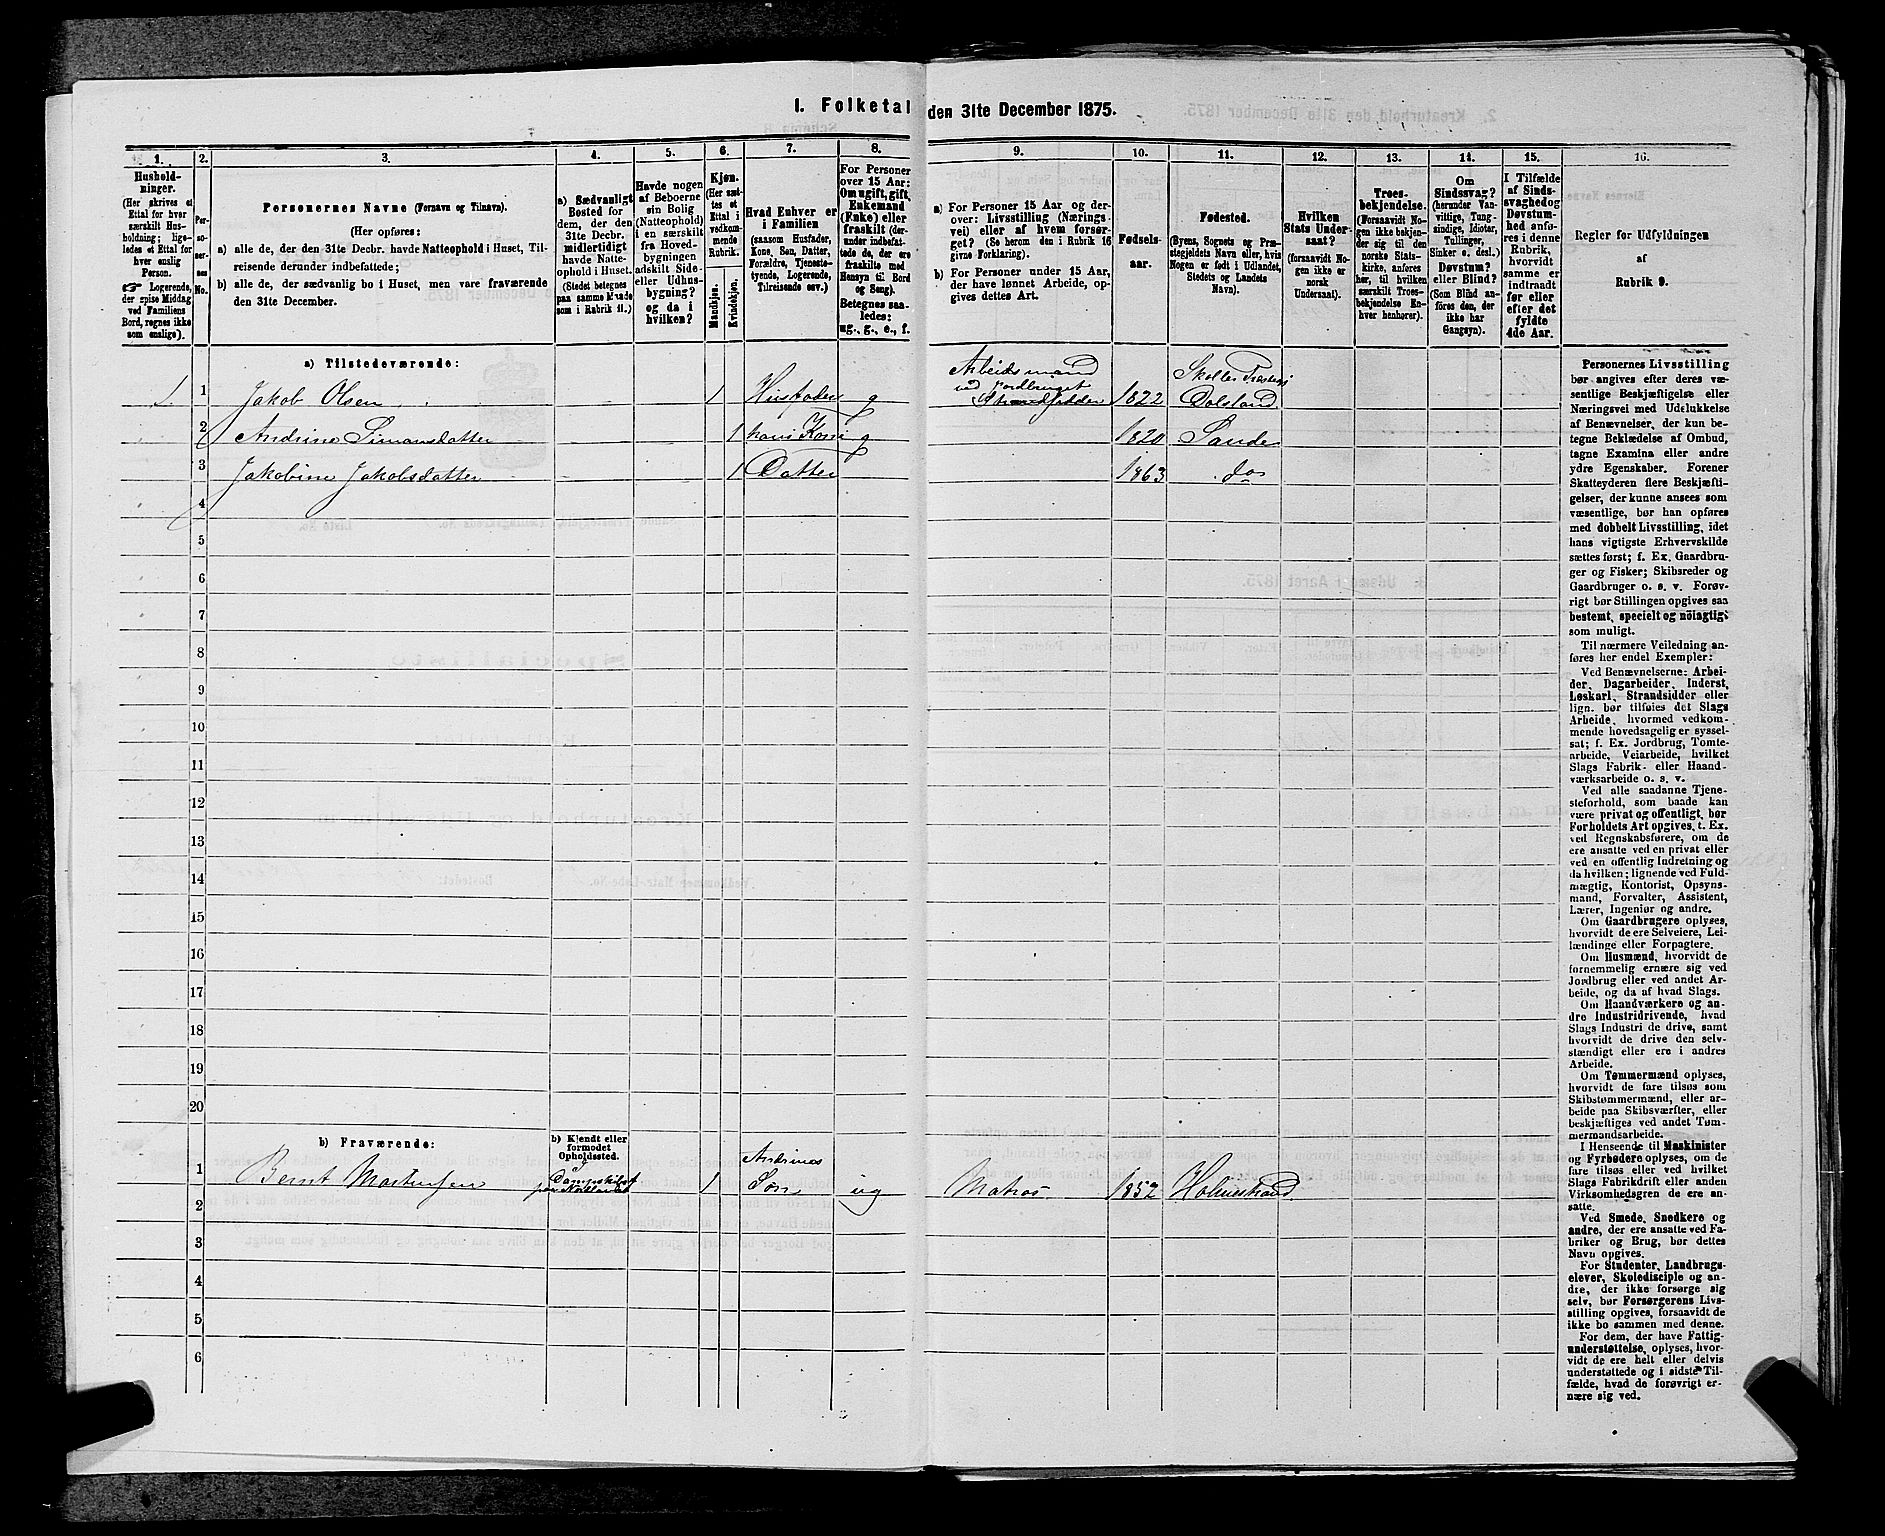 1. Folketal den 31te December 1875.
1.
2.
3.
4.
5.
6.
7.
8.
9.
10.
11.
12.
13.
14.
15.
16.
Hushold-
ninger.
(Her skrives et
Ettal for hver
særskilt Hus-
holdning; lige-
ledes et Ettal for
hver enslig
Person.
☞ Logerende,
der spise Middag
ved Familiens
Bord, regnes ikke
som enslige).
Per-
so-
ner-
nes
No.
Personernes Navne (Fornavn og Tilnavn).
(Her opføres:
a) alle de, der den 31te Decbr. havde Natteophold i Huset, Til-
reisende derunder indbefattede;
b) alle de, der sædvanlig bo i Huset, men vare fraværende
den 31te December.
a) Sædvanligt
Bosted for
dem, der den
31te Decbr.
midlertidigt
havde Natte-
ophold i Huset.
(Stedet betegnes
paa samme Maade
som i Rubrik 11.)
Havde nogen
af Beboerne
sin Bolig
(Natteophold)
i en særskilt
fra Hoved-
bygningen
adskilt Side-
eller Udhus-
bygning?
og da i
hvilken?
Kjøn.
(Her sæt-
tes et
Ettal i
vedkom-
mende
Rubrik.
Mandkjøn.
Kvindekjøn.
Hvad Enhver er
i Familien
(saasom Husfader,
Kone, Søn, Datter,
Forældre, Tjeneste-
tyende, Logerende,
Tilreisende osv.)
For Personer
over 15 Aar:
Om ugift, gift,
Enkemand
(Enke) eller
fraskilt (der-
under indbefat-
tede de, der ere
fraskilte med
Hensyn til Bord
og Seng).
Betegnes saa-
ledes:
ug., g., e., f.
a) For Personer 15 Aar og der-
over: Livsstilling (Nærings-
vei) eller af hvem forsør-
get? (Se herom den i Rubrik 16
givne Forklaring).
b) For Personer under 15 Aar,
der have lønnet Arbeide, op-
gives dettes Art.
Fødsels-
aar.
Fødested.
(Byens, Sognets og Præ-
stegjeldets Navn, eller hvis
Nogen er født i Udlandet,
Stedets og Landets
Navn).
Hvilken
Stats Under-
saat?
(forsaavidt No-
gen ikke er
norsk
Undersaat).
Troes-
bekjendelse.
(Forsaavidt No-
gen ikke bekjen-
der sig til den
norske Stats-
kirke, anføres
her, til hvilken
særskilt Troes-
bekjendelse En-
hver henhører).
Om
Sindssvag?
(herunder Van-
vittige, Tung-
sindige, Idioter,
Tullinger,
Sinker o. desl.)
Døvstum?
eller Blind?
(Som Blind an-
føres den, der
ikke har
Gangsyn).
I Tilfælde
af Sinds-
svaghed og
Døvstum-
hed anfø-
res i denne
Rubrik,
hvorvidt
samme er
indtraadt
før eller
efter det
fyldte
4de Aar.
Regler for Udfyldningen
af
Rubrik 9.
a) Tilstedeværende:
1 1 Jakob Olsen 1 Husfader g Arbeidsmand ved Jordbruget Strandsidder 1822 Dalsland
2 Andrine Simonsdatter 1 hans Kone g 1820 Sande
3 Jakobine Jakobsdatter 1 Datter 1863 do
4
5
6
7
8
9
10
11
12
13
14
15
16
17
18
19
20
b) Fraværende:
b) Kjendt eller
formodet
Opholdssted.
1 Bernt Mortensen Dampskibet 1 Andrines Søn ug Matros 1852 Holmestrand
2
3
4
5
6
Personernes Livsstilling
bør angives efter deres væ-
sentlige Beskjæftigelse eller
Næringsvei med Udelukkelse
af Benævnelser, der kun be-
tegne Beklædelse af Ombud,
tagne Examina eller andre
ydre Egenskaber. Forener
Skatteyderen flere Beskjæfti-
gelser, der kunne ansees som
væsentlige, bør han opføres
med dobbelt Livsstilling, idet
hans vigtigste Erhvervskilde
sættes først; f. Ex. Gaardbru-
ger og Fisker; Skibsreder og
Gaardbruger o. s. v. Forøv-
rigt bør Stillingen opgives saa
bestemt, specielt og nöiagtigt
som muligt.
Til nærmere Veiledning an-
føres her endel Exempler:
Ved Benævnelserne: Arbei-
der, Dagarbeider, Inderst,
Løskarl, Strandsidder eller
lign. bør tilføies det Slags
Arbeide, hvormed vedkom-
mende hovedsagelig er syssel-
sat; f. Ex. Jordbrug, Tomte-
arbeide, Veiarbeide, hvilket
Slags Fabrik- eller Haand-
værksarbeide o. s. v.
Ved alle saadanne Tjene-
steforhold, som baade kan
være privat og offentligt, bør
Forholdets Art opgives, t. Ex.
ved Regnskabsførere, om de
ere ansatte ved en privat eller
ved en offentlig Indretning og
da hvilken; lignende ved Fuld-
mægtig, Kontorist, Opsyns-
mand, Forvalter, Assistent,
Lærer, Ingeniør og andre.
Om Gaardbrugere oplyses,
hvorvidt de ere Selveiere, Lei-
lændinge eller Forpagtere.
Om Husmænd, hvorvidt de
fornemmelig ernære sig ved
Jordbrug eller ved andet Ar-
beide, og da af hvad Slags.
Om Haandværkere og an-
dre Industridrivende, hvad
Slags Industri de drive, samt
hvorvidt de drive den selv-
stændigt eller ere i andres
Arbeide.
Om Tømmermænd oplyses,
hvorvidt de fare tilsøs som
Skibstømmermænd, eller ar-
beide paa Skibsværfter, eller
beskjæftiges ved andet Tøm-
mermandsarbeide.
I Henseende til Maskinister
og Fyrbødere oplyses, om de
fare tilsøs eller ved hvilket
Slags Fabrikdrift eller anden
Virksomhedsgren de ere an-
satte.
Ved Smede, Snedkere og
andre, der ere ansatte ved Fa-
briker og Brug, bør dettes
Navn opgives.
For Studenter, Landbrugs-
elever, Skoledisciple og an-
dre, der ikke forsørge sig
selv, bør Forsørgerens Livs-
stilling opgives, forsaavidt de
ikke bo sammen med denne.
For dem, der have Fattig-
understøttelse, oplyses, hvor-
vidt de ere helt eller delvis
understøttede og i sidste Til-
fælde, hvad de forøvrigt er-
nære sig ved.